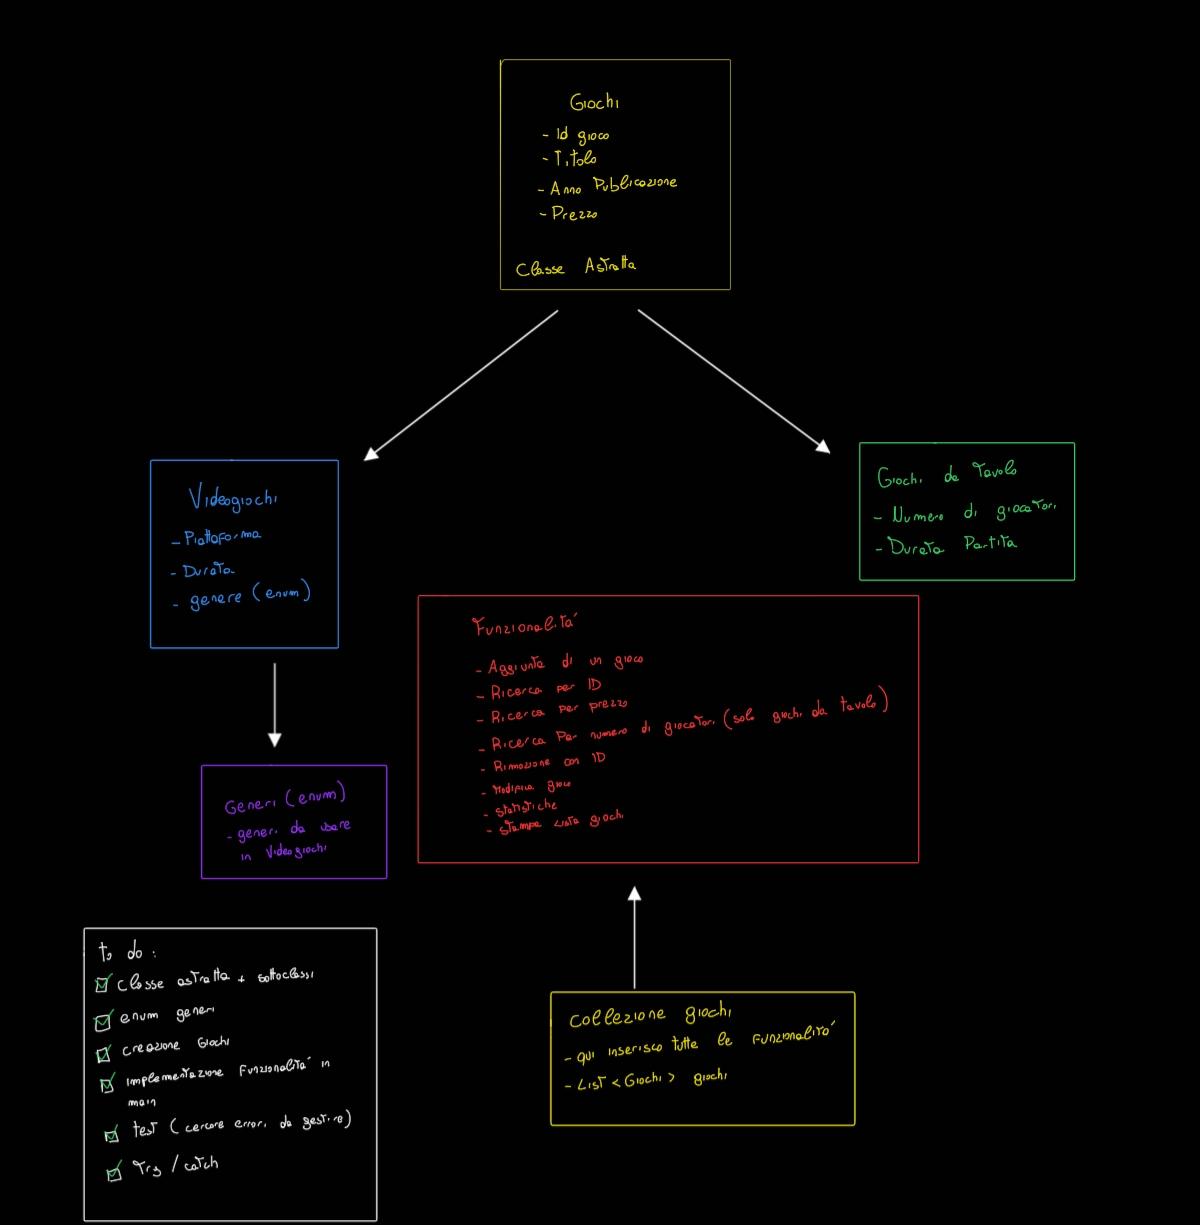 Giochi
- Id gioco
- Titolo
- Anno Pubblicazione
- Prezzo
Classe Astratta
Videogiochi
- Piattaforma
- Durata
- genere (enum)
Giochi da Tavolo
- Numero di giocatori
- Durata Partita
Funzionalità
- Aggiunta di un gioco
- Ricerca per ID
- Ricerca per prezzo
- Ricerca Per numero di giocatori (solo giochi da tavolo)
- Rimozione con ID
- Modifica gioco
- statistiche
- stampa Lista giochi
Generi (enum)
- generi da usare
in Videogiochi
to do :
Classe astratta + sottoclassi
enum generi
creazione Giochi
implementazione Funzionalità in
main
test (cercare errori da gestire)
Try / catch
Collezione giochi
- qui inserisco tutte le Funzionalità
- List <Giochi> giochi